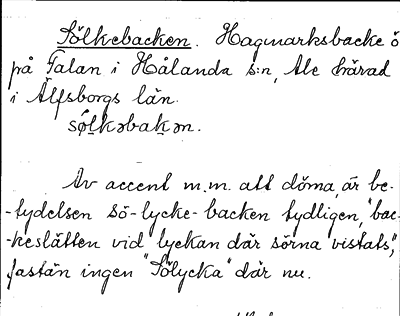 Sölkebacken. Hagmarksbacke ö
på Falan i Hålanda s:n, Ale härad
i Älfsborgs län.
sø̀lkəbakən.
Av accent m.m. att döma, är be-
-tydelsen sö-lycke-backen tydligen, "bac-
-keslätten vid lyckan där sörna vistats",
fastän ingen "Sölycka" där nu.